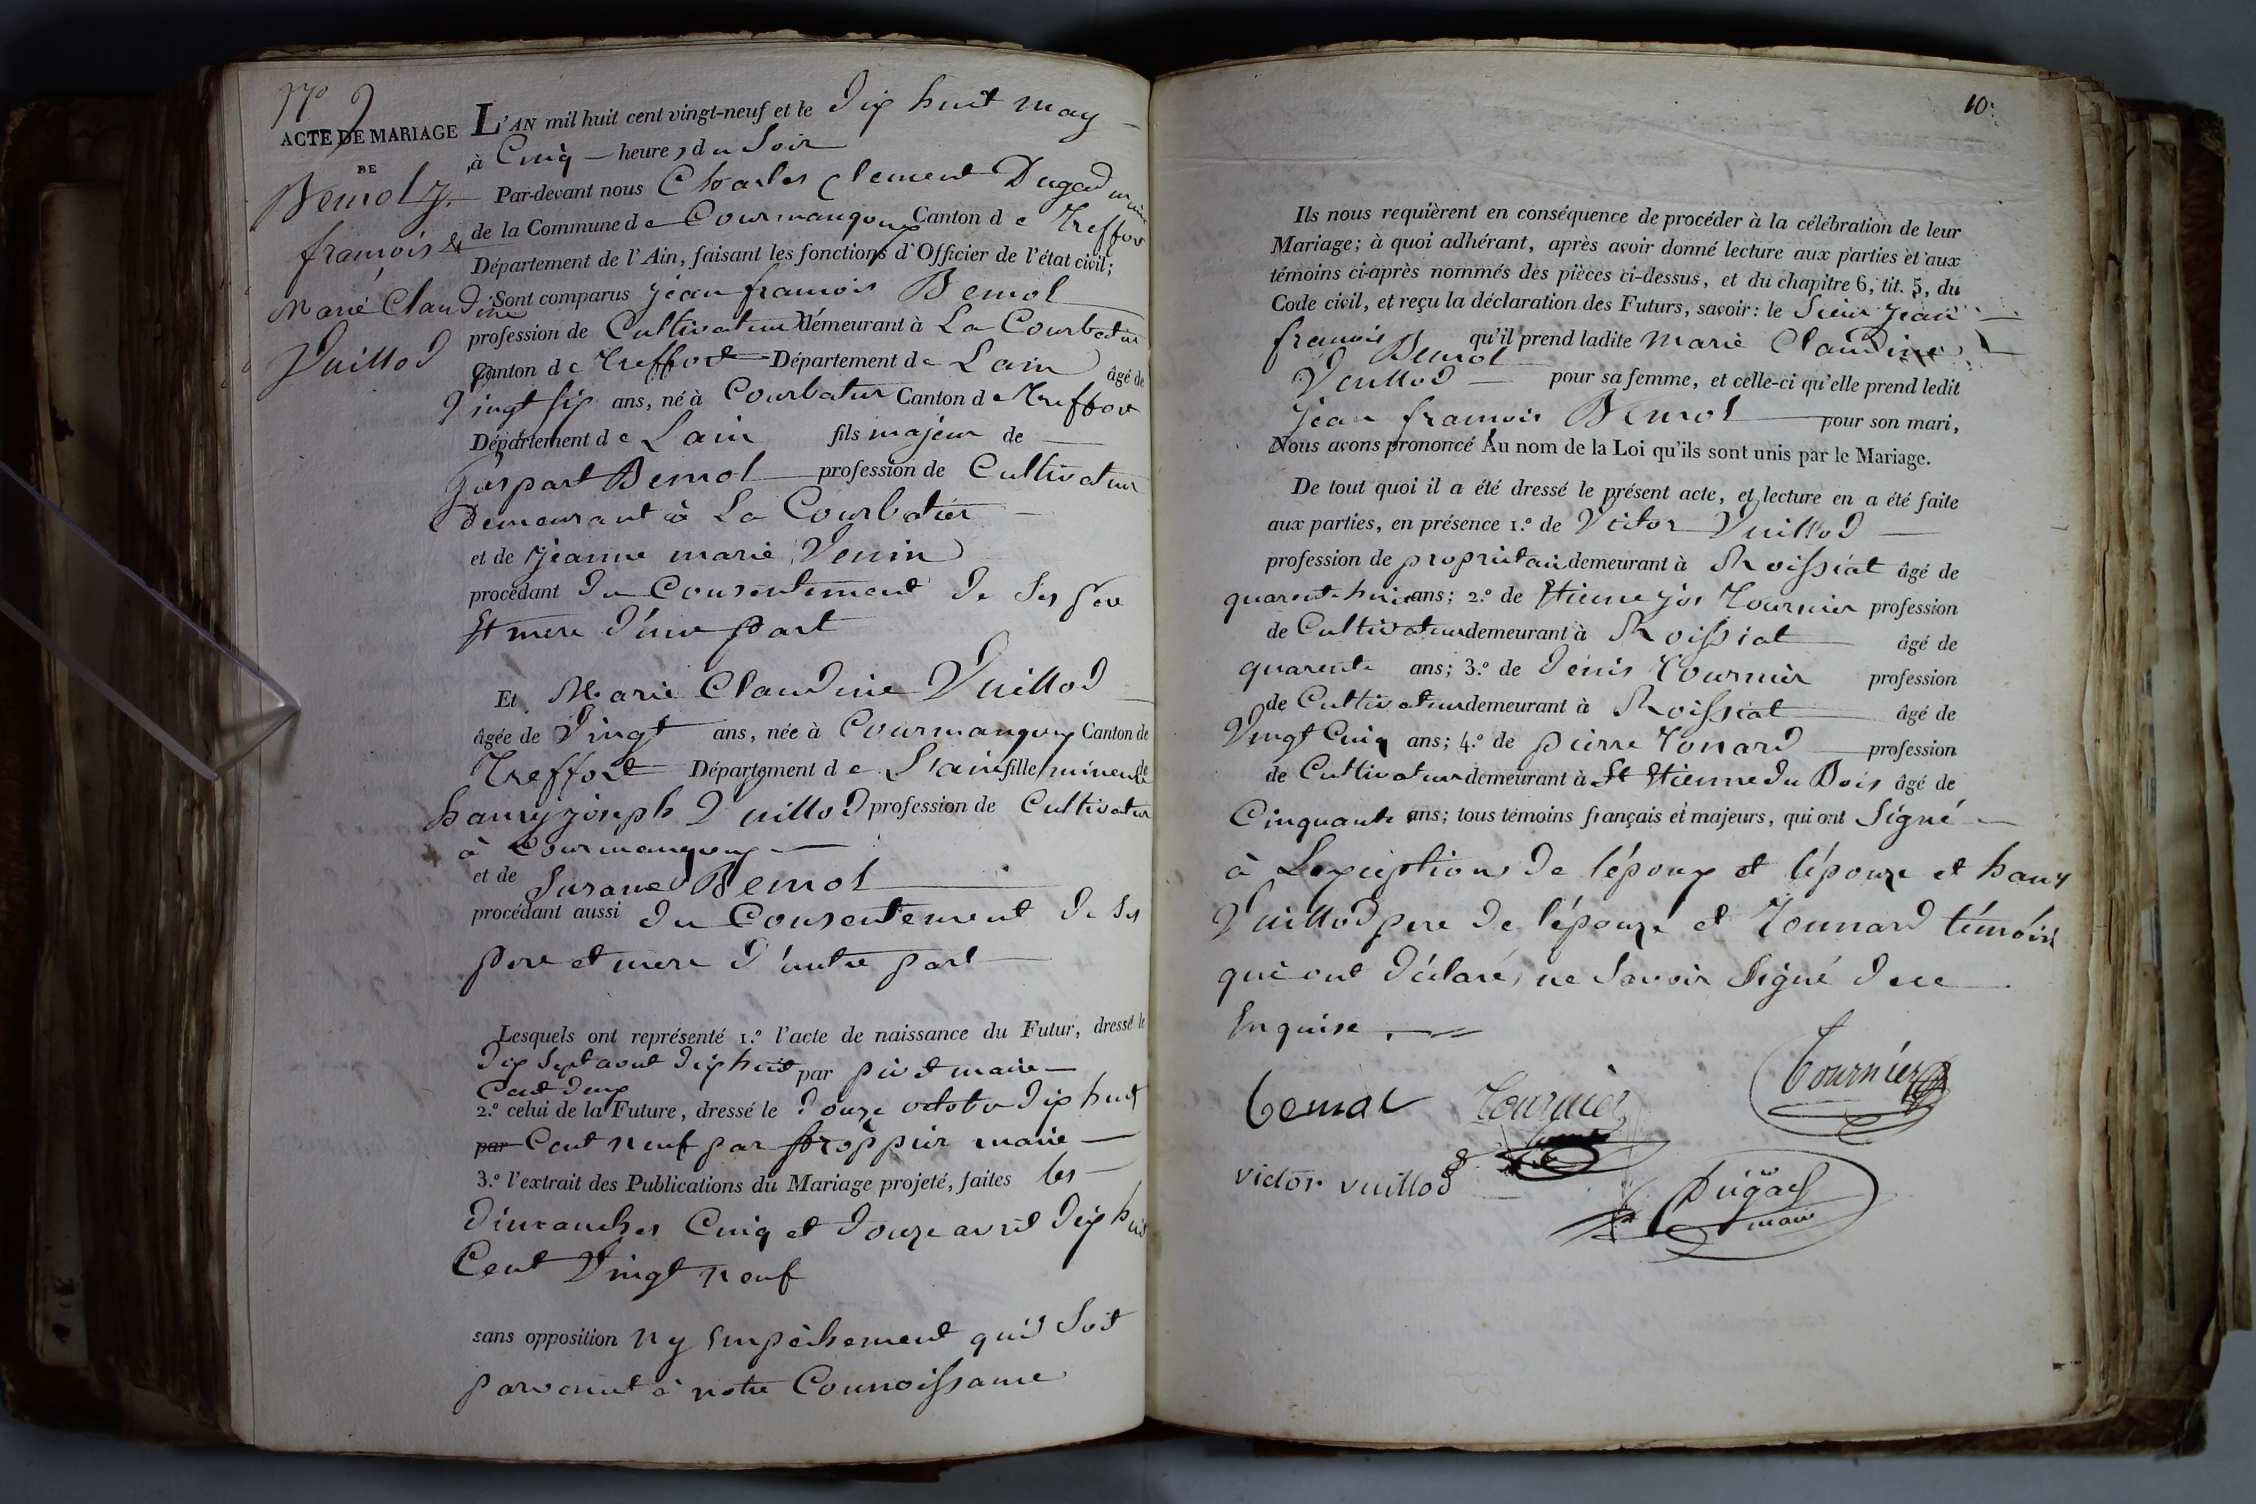 N.º 9
ACTE DE MARIAGE
DE
Bemol
françois &
Marie Claudine
Vuillod
L'AN mil huit cent vingt-neuf et le Dix huit may
à Cinq heures du Soir
Par-devant nous Charles Clement Dugad maire
de la Commune de Courmangoux Canton de Treffort
Département de l'Ain, faisant les fonctions d'Officier de l'état civil;
Sont comparus jean françois Bemol
profession de Cultivateur démeurant à La Courbatur
Canton de Treffort Département de Lain âgé de
Vingt six ans, né à Courbatur Canton de Treffort
Département de Lain fils majeur de
Gaspart Bemol profession de Cultivateur
Demeurant à La Courbatier
et de Jeanne marie Venin
procédant du Consentement de Ses pere
Et mere d'une part
Et Marie Claudine Vuillod
âgée de Vingt ans, née à Courmangoux Canton de
Treffort Département de Lain fille mineure de
hanry joseph Vuillod profession de Cultivateur
à Courmangoux
et de Susanne Bemol
procédant aussi du Consentement de Ses
pere et mere d'autre part
Lesquels ont représenté 1.º l'acte de naissance du Futur, dressé le
dix Sept aout dix huit par pivet maire
Cent deux
2.º celui de la Future, dressé le douze octobre dix huit
par Cent neuf par maire
3.º l'extrait des Publications du Mariage projeté, faites les
dimanches Cinq et douze avril dix huit
Cent Vingt neuf
sans opposition ny Empêchement qui Soit
parvenut à notre Connoissance
10
Ils nous requièrent en conséquence de procéder à la célébration de leur
Mariage; à quoi adhérant, après avoir donné lecture aux parties et aux
témoins ci-après nommés des pièces ci-dessus, et du chapitre 6, tit. 5, du
Code civil, et reçu la déclaration des Futurs, savoir: le Sieur Jean
françois Bemol qu'il prend ladite Marie Claudine
Vuillod pour sa femme, et celle-ci qu'elle prend ledit
jean françois Bemol pour son mari,
Nous avons prononcé Au nom de la Loi qu'ils sont unis par le Mariage.
De tout quoi il a été dressé le présent acte, et lecture en a été faite
aux parties, en présence 1.º de Victor Vuillod
profession de proprietai demeurant à Roissiat âgé de
quarente huit ans; 2.º de Etienne jos Tournier profession
de Cultivateur demeurant à Roissiat âgé de
quarente ans; 3.º de Denis Tournier profession
de Cultivateur demeurant à Roissiat âgé de
Vingt Cinq ans; 4.º de pierre Tonnard profession
de Cultivateur demeurant à St Etienne du Bois âgé de
Cinquante ans; tous témoins français et majeurs, qui ont Signé
à Lexception de l'époux et l'épouze et hanry
Vuillod pere de l'épouze et Tonnard témoin
qui ont déclaré ne Savoir Signé de ce
Enquise
bemol Tournier Tournier
victor vuillod
Dugad
maire